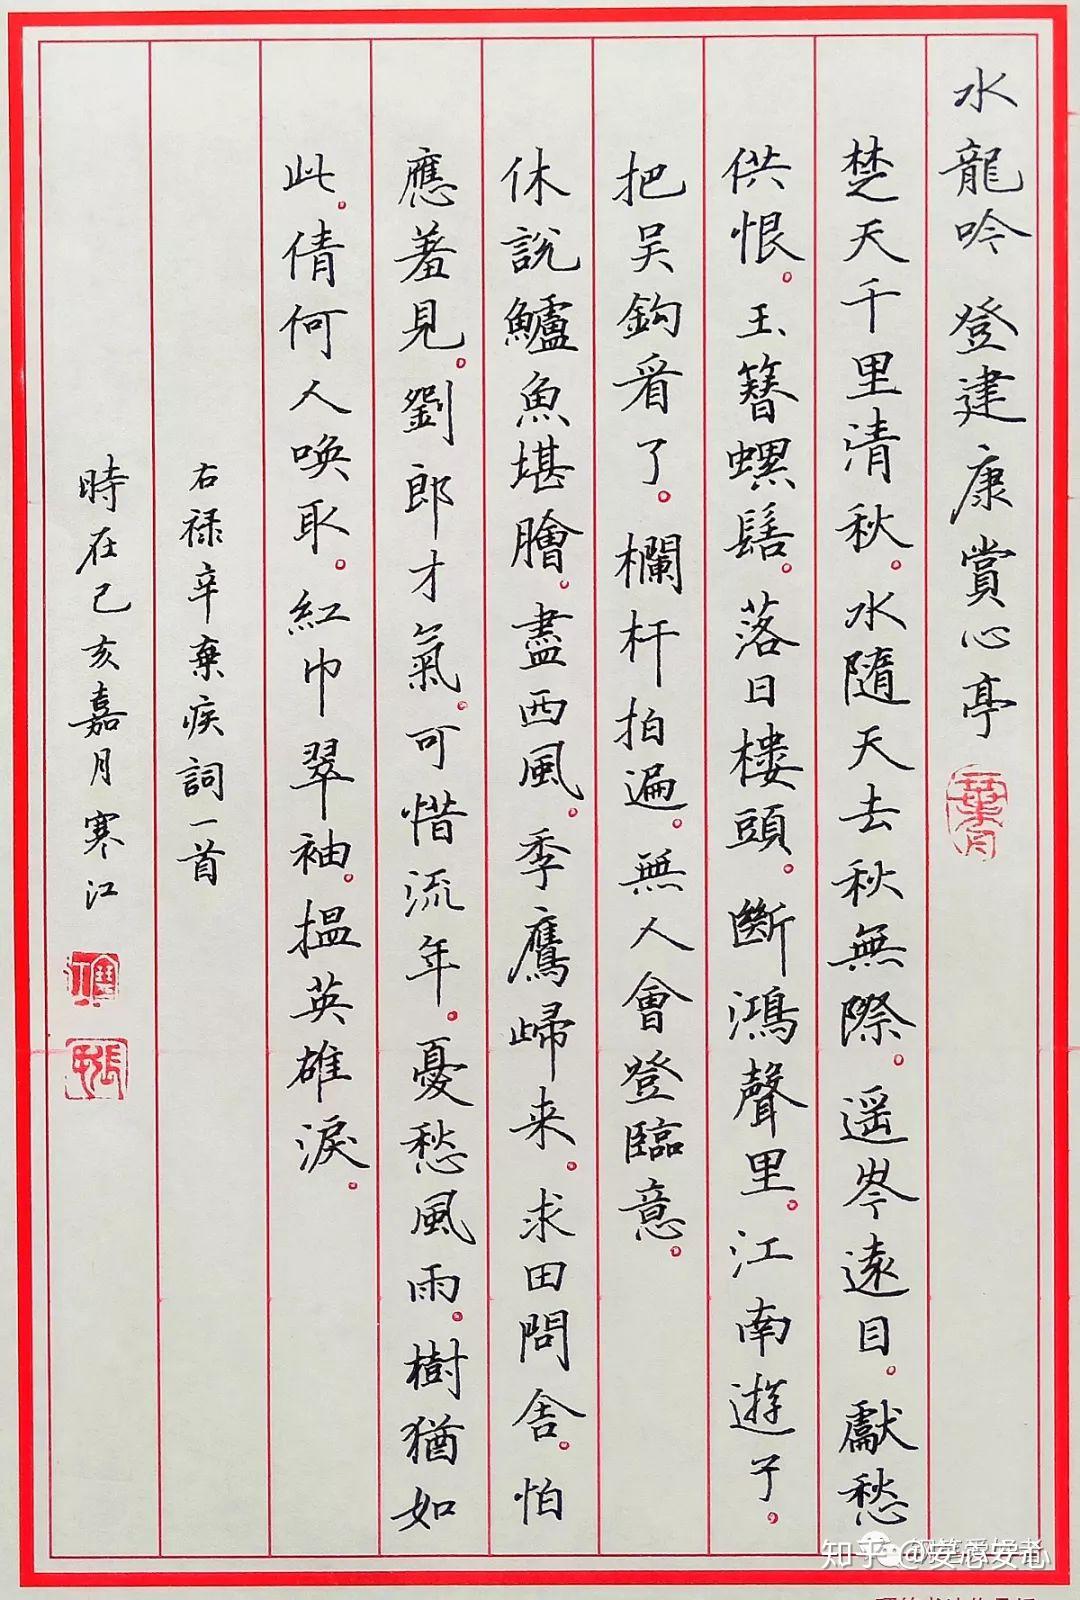 水龍吟 登建康賞心亭
楚天千里清秋。水隨天去秋無際。遥岑遠目。獻愁
供恨。玉簪螺髻。落日樓頭。斷鴻聲里。江南遊子。
把吴鈎看了。欄杆拍遍。無人會登臨意。
休説鱸魚堪膾。盡西風。季鷹歸来。求田問舍。怕
應羞見。劉郎才氣。可惜流年。憂愁風雨。樹猶如
此。倩何人唤取。紅巾翠袖。揾英雄淚。
右禄辛棄疾詞一首
時在己亥嘉月寒江
知乎 @安心安心